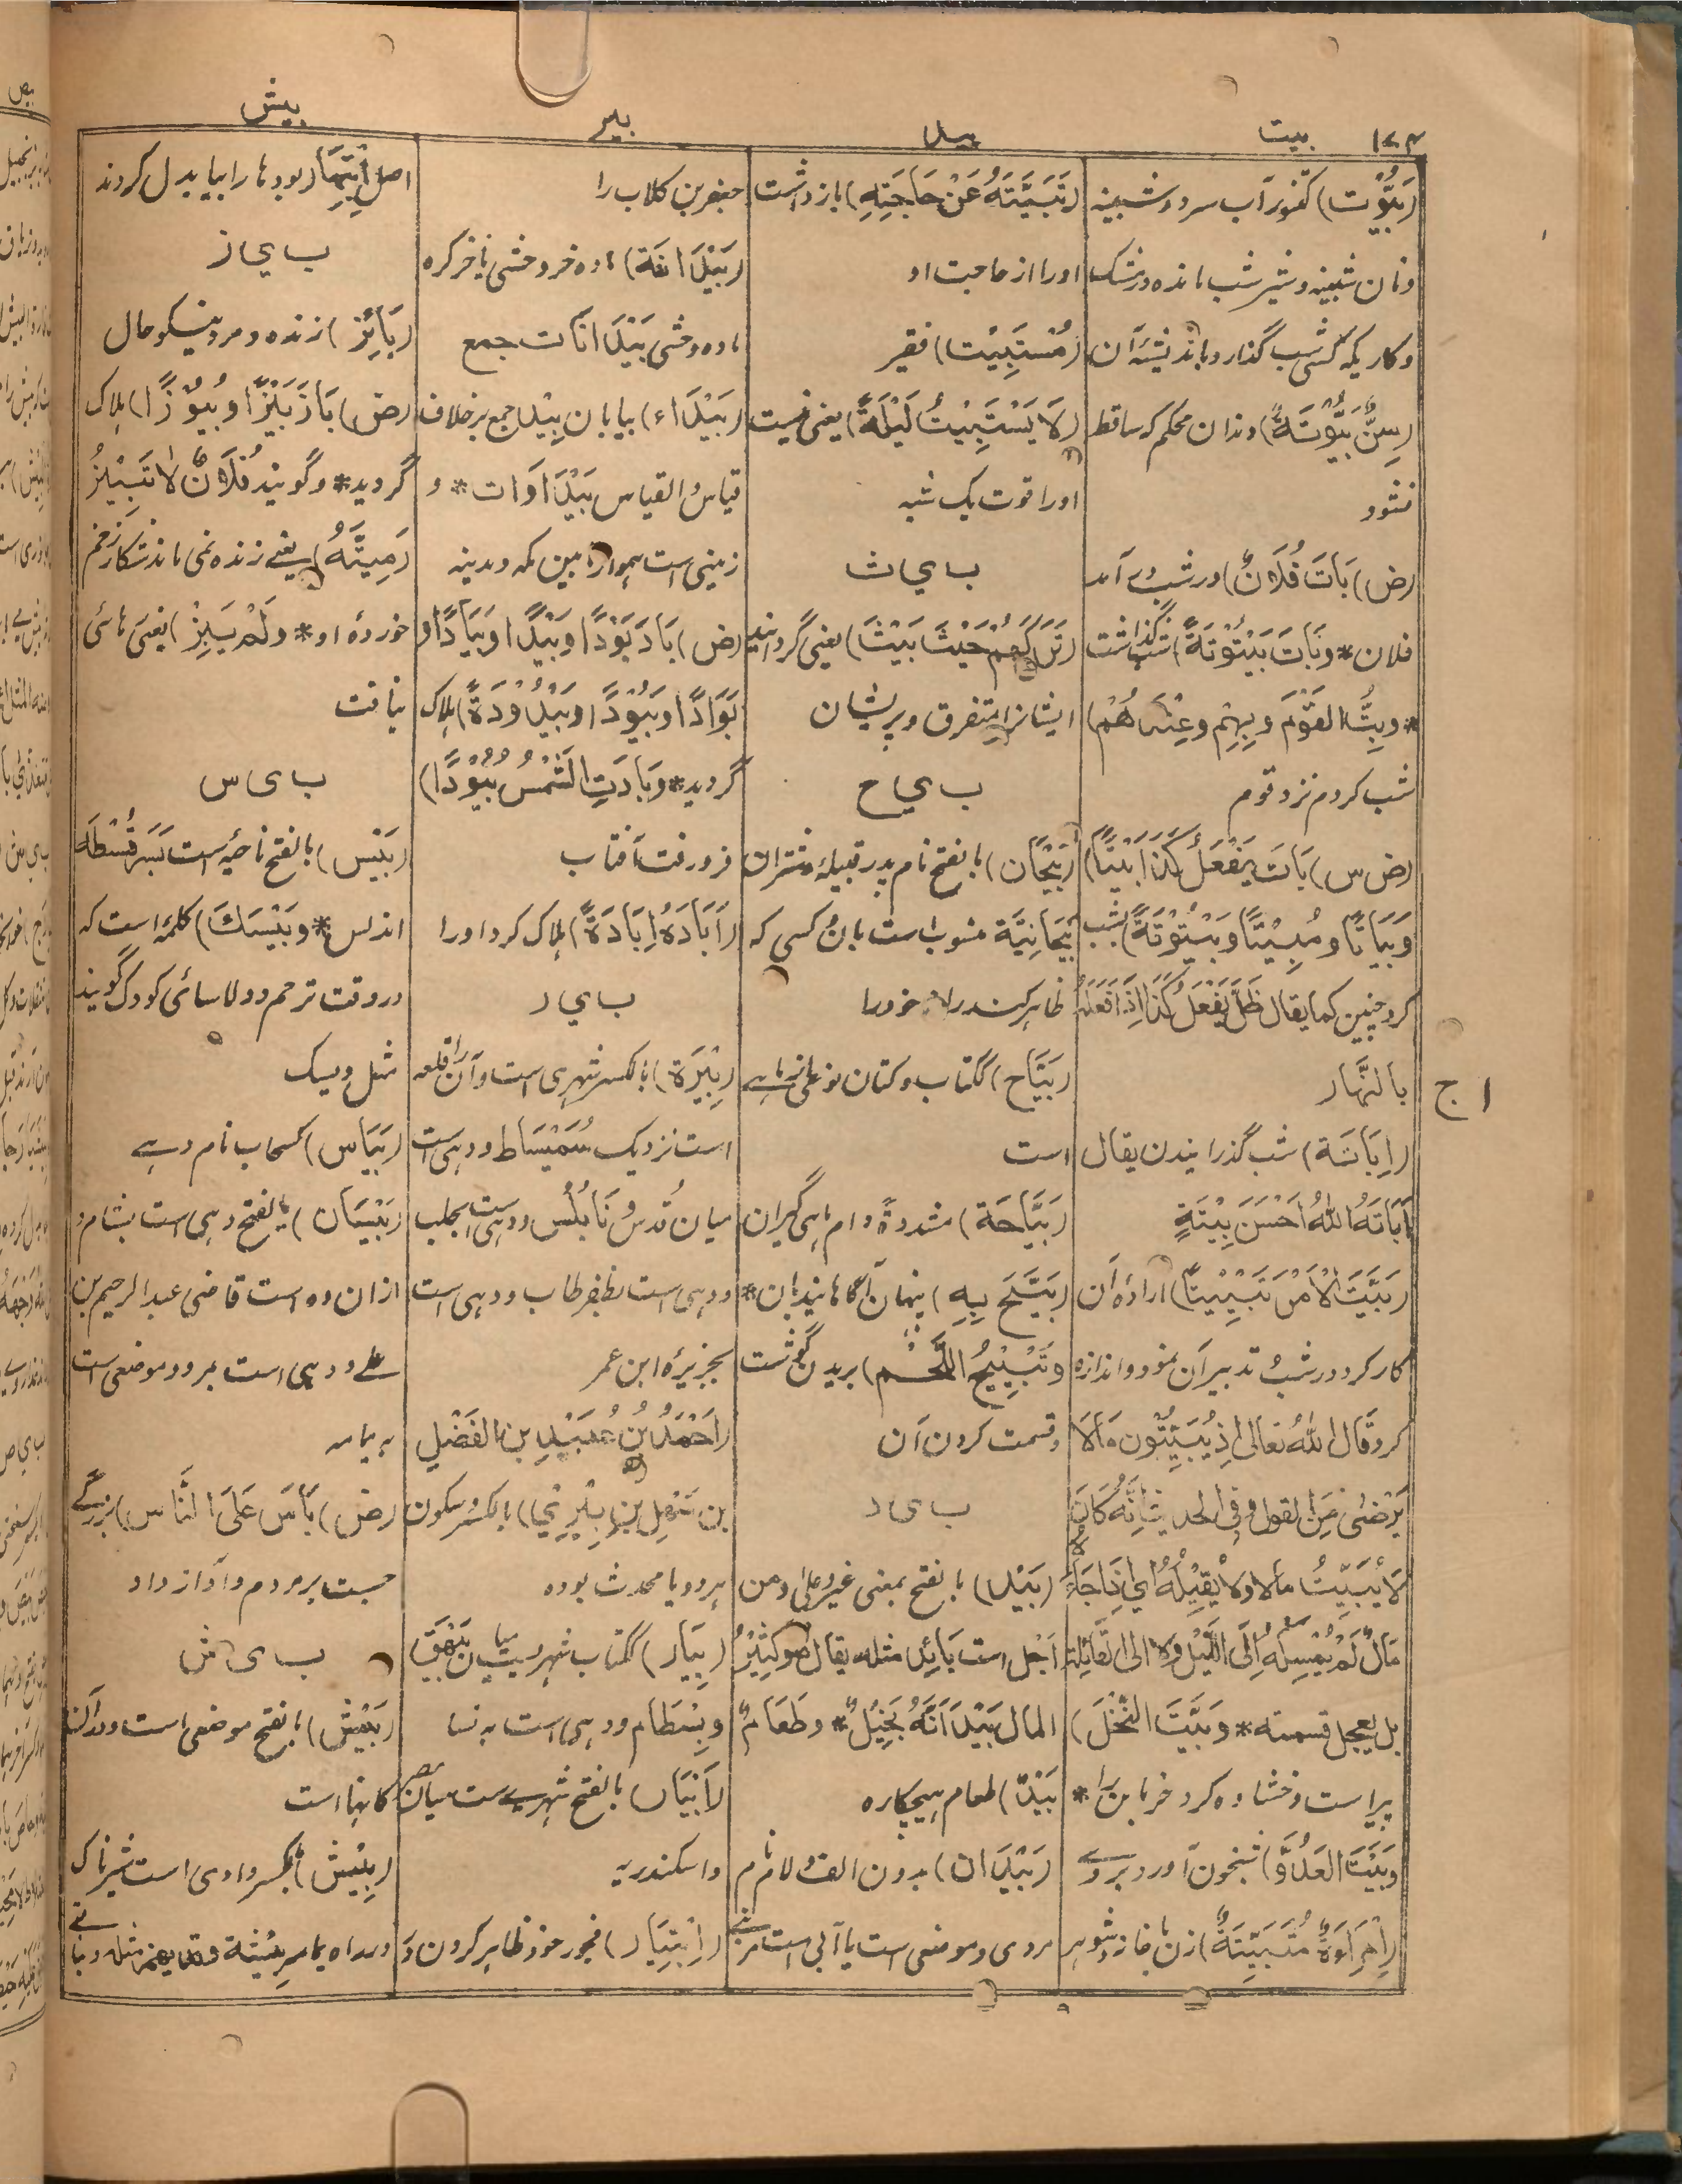 ۱۷۴ بیت بید بیر بیش
(بَیُّوْت) کتنور آب سرد و شبینه
و نان شبینه و شیر شب مانده در مشک
و کاریکه کسی شب گذارد باندیشهٔ آن
(سِنٌّ بَیُّوْتَةٌ) دندان محکم که ساقط
نشود
(ض) بَاتَ فُلَانٌ) در شب در آمد
فلان * و بَاتَ بَیْتُوْتَةً) شب گذاشت
* و بِتُّ القَوْمَ و بِهِمْ و عِنْدَهُمْ)
شب کردم نزد قوم
(ض س) بَاتَ یَفْعَلُ کَذَا بَیْتًا)
وَبَیَاتًا و مَبِیْتًا و بَیْتُوْتَةً) شب
کرد چنین کما یقال ظَلَّ یَفْعَلُ کَذَا اِذَا فَعَلَهُ
بالنَّهَار
(اِبَاتَة) شب گذرانیدن یقال
اَبَاتَهُ اللهُ اَحْسَنَ بِیْتَةٍ
(بَیَّتَ الْاَمْرَ تَبْیِیْتًا) ارادهٔ آن
کار کرد در شب و تدبیر آن نمود و اندازه
کرد قَال اللهُ تعالی اِذْ یُبَیِّتُوْن مَا لَا
یَرْضٰی مِنَ القول و فی الحدیث اِنَّهُ کَانَ
لَا یُبَیِّتُ مالا ولا یُقِیْلُهُ ای اِذَا جَاءَ
مَالٌ لَمْ یُمْسِکْهُ اِلَی اللَّیْل وَلا الی القَائِلَة
بل یعجل قسمته * وَ بَیَّتَ النَّخْلَ)
پیراست و خشاوه کرد خرمابن را *
وبَیَّتَ العَدُوَّ) شبخون آورد بر وے
(اِمْرَاَةٌ مُتَبَیِّتَةٌ) زن با خانه و شوهر
(تَبَیَّتَهُ عَنْ حَاجَتِهِ) باز داشت
او را از حاجت او
(مُسْتَبِیْت) فقیر
(لَا یَسْتَبِیْتُ لَیْلَةً) یعنی نیست
او را قوت یک شبه
ب ی ث
(تَرَکَهُمْ حَیْثَ بَیْثَ) یعنی گردانید
ایشانرا متفرق و پریشان
ب ی ح
(بَیْحَان) بالفتح نام پدر قبیلهٔ شتران
بَیْحَانِیَّة منسوب است بآن و کسی که
ظاهر کند راز خود را
(بَیَّاح) ککتاب و کتان نوعی از ماهے
است
(بَیَّاحَة) مشددةً دام ماهی گیران
(بَیَّحَ بِهِ) پنهان آگاهانید بآن *
وتَبْیِیْحُ اللَّحْم) بریدن گوشت
و قسمت کردن آن
ب ی د
(بَیْد) بالفتح بمعنی غیر و علی و من
اَجْل است بَایْد مثله یقال هو کَثِیْرُ
المال بَیْدَ اَنَّهُ بَخِیْلٌ * و طَعَامٌ
بَیْدٌ) طعام هیچکاره
(بَیْدَان) بدون الف و لام نام
مردی و موضعی است یا آبی است
جعفر بن کلاب را
(بَیْدَانَة) ماده خر وحشی یا خر کره
ماده وحشی بَیْدَانَات جمع
(بَیْدَاء) بیابان بِیْد جمع بر خلاف
قیاس و القیاس بَیْدَاوَات * و
زمینی است هموار مابین مکه و مدینه
(ض) بَادَ بَوْدًا و بَیْدًا و بَیَادًا و
بَوَادًا و بُیُوْدًا و بَیْدُوْدَةً) هلاک
گردید * و بَادَتِ الشَّمْسُ بُیُوْدًا)
فرو رفت آفتاب
(اَبَادَهُ اِبَادَةً) هلاک کرد او را
ب ی ر
(بِیْرَة) بالکسر شهری است و آن را قلعه
است نزدیک سُمَیْسَاط و دهی است
میان قُدس و نَابُلُس و دهی است بحلب
و دهی است بظفر طاب و دهی است
بجزیرهٔ ابن عمر
(اَحْمَدُ بْنُ عُبَیْدِ بن الفَضْل
بن سَهْلِ بْنِ بِیْرِیْ) بالکسر و سکون
هر دو یا محدث بوده
(بِیَار) ککتاب شهریست میان بَیْهَق
و بِسْطَام و دهی است به نسا
(اَبْیَار) بالفتح شهریست میان مصر
و اسکندریه
(اِبْتِیَار) فجور خود ظاهر کردن
اصل اِبْتِهَار بود ها را بیا بدل کردند
ب ی ز
(بَائِز) زنده و مرد نیکو حال
(ض) بَازَ بَیْزًا و بُیُوْزًا) هلاک
گردید * و گویند فُلَانٌ لَا تَبِیْزُ
رَمِیَّتُهُ) یعنے زنده نمی ماند شکار زخم
خوردهٔ او * و لَمْ یَبِزْ) یعنی رهائی
نیافت
ب ی س
(بَیْس) بالفتح ناحیه است بسَرَقُسْطَه
اندلس * و بَیْسَكَ) کلمه است که
در وقت ترحم و دلاسائی کودک گویند
مثل ویسک
(بَیَاس) کسحاب نام دهے
(بَیْسَان) بالفتح دهی است بشام و
ازان ده است قاضی عبد الرحیم بن
علے و دهی است بمرو و موضعی است
به یمامه
(ض) بَاسَ عَلَی النَّاس) بزرگے
جست بر مردم و آواز داد
ب ی ش
(بَیْش) بالفتح موضعی است و دران
کانها است
(بِیْش) بالکسر وادی است شیرناک
در راه یمامه بِیْشَة و قد یهمز مثله و نباتے
ا ج